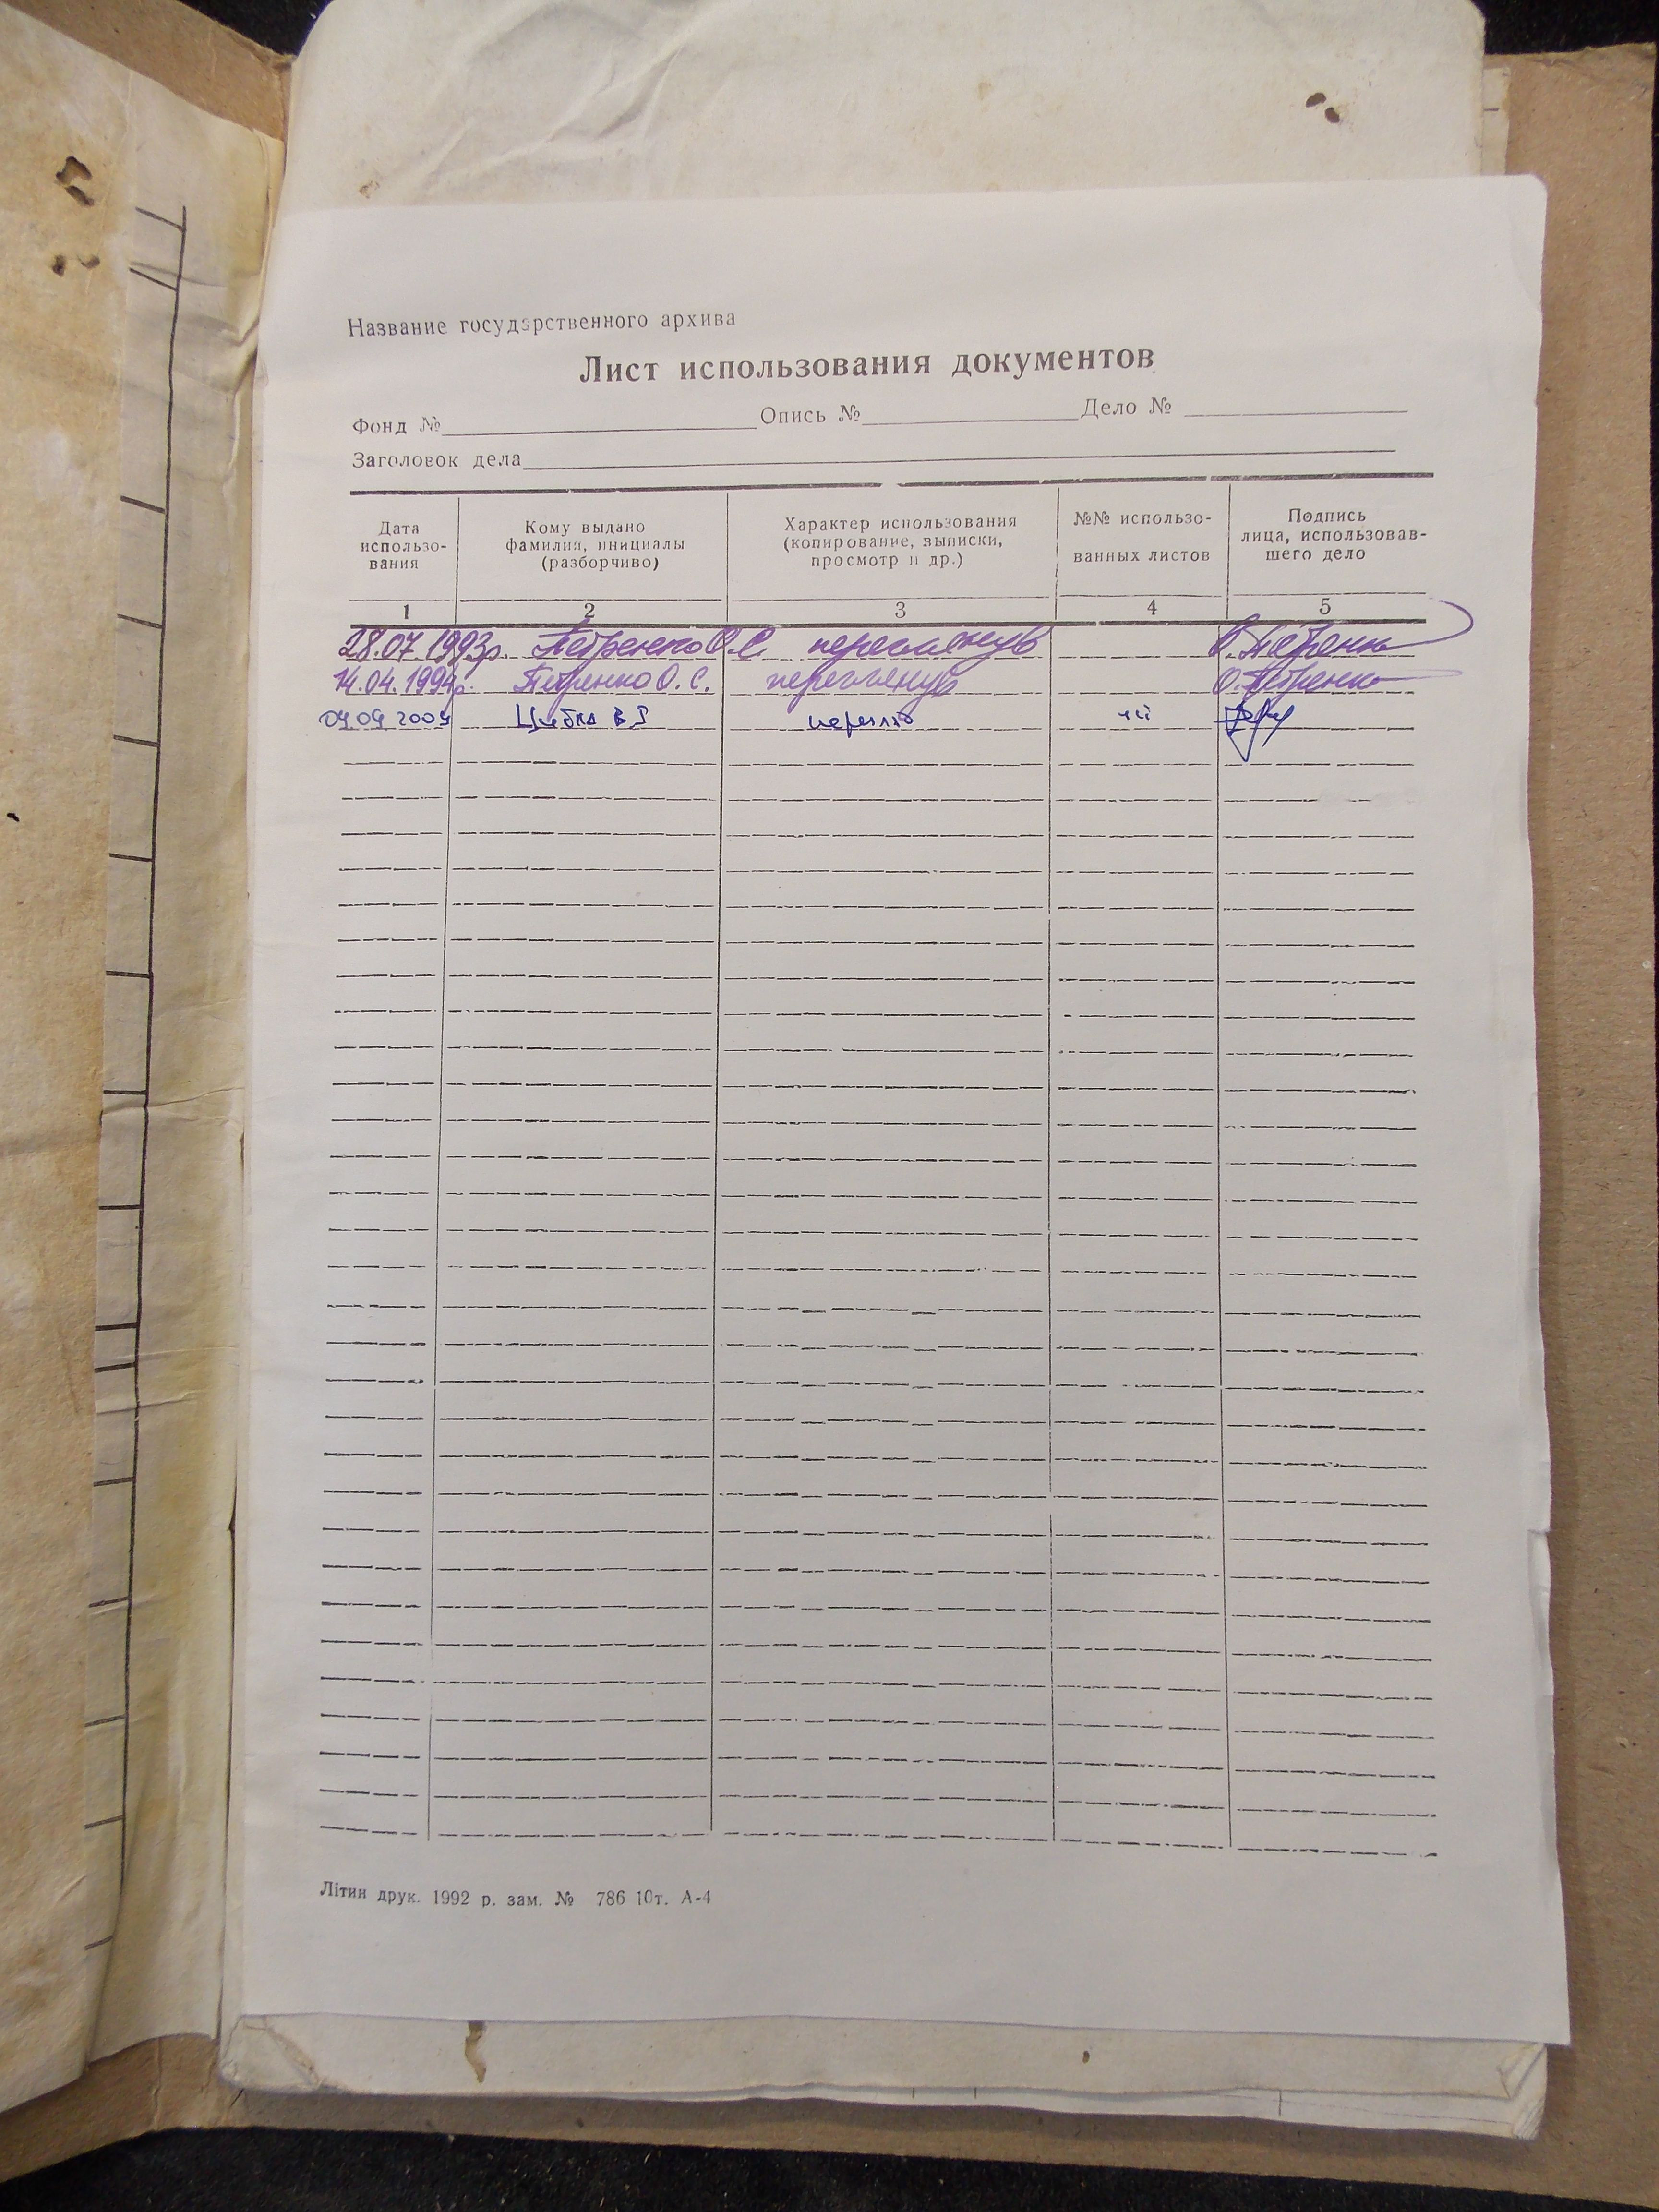 Название государственного архива
Лист использования документов
Фонд № Опись № Дело №
Заголовок дела
Дата использо-вания Кому выдано фамилия, инициалы (разборчиво) Характер использования (копирование, выписки, просмотр и др.) №№ использо-ванных листов Подпись лица, использовав-шего дело
1 2 3 4 5
28.07.1993р. Петренко О.С. переглянув О.Петренко
14.04.1994р. Петренко О.С. переглянув О.Петренко
09.2009 Цибка В
Літин друк. 1992 р. зам. № 786 10т. А-4